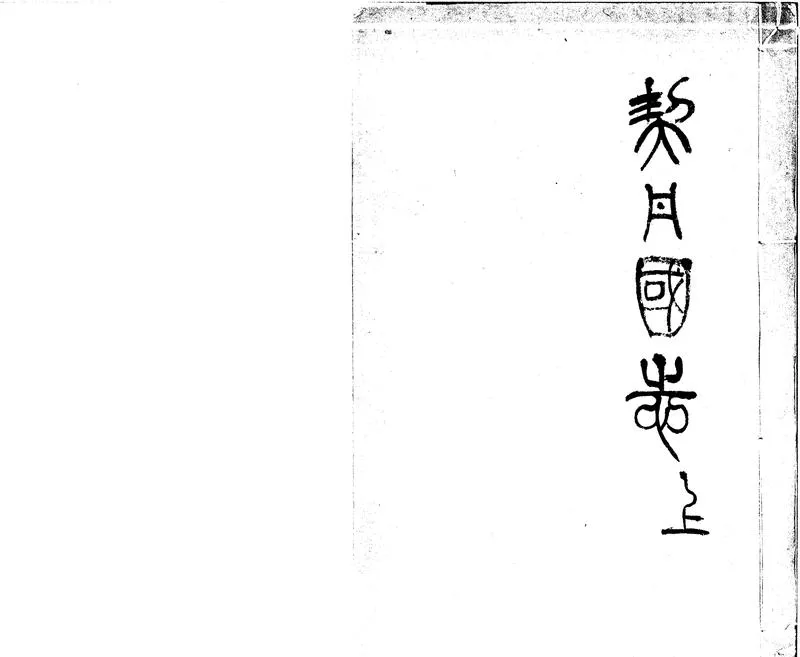 契丹國志上